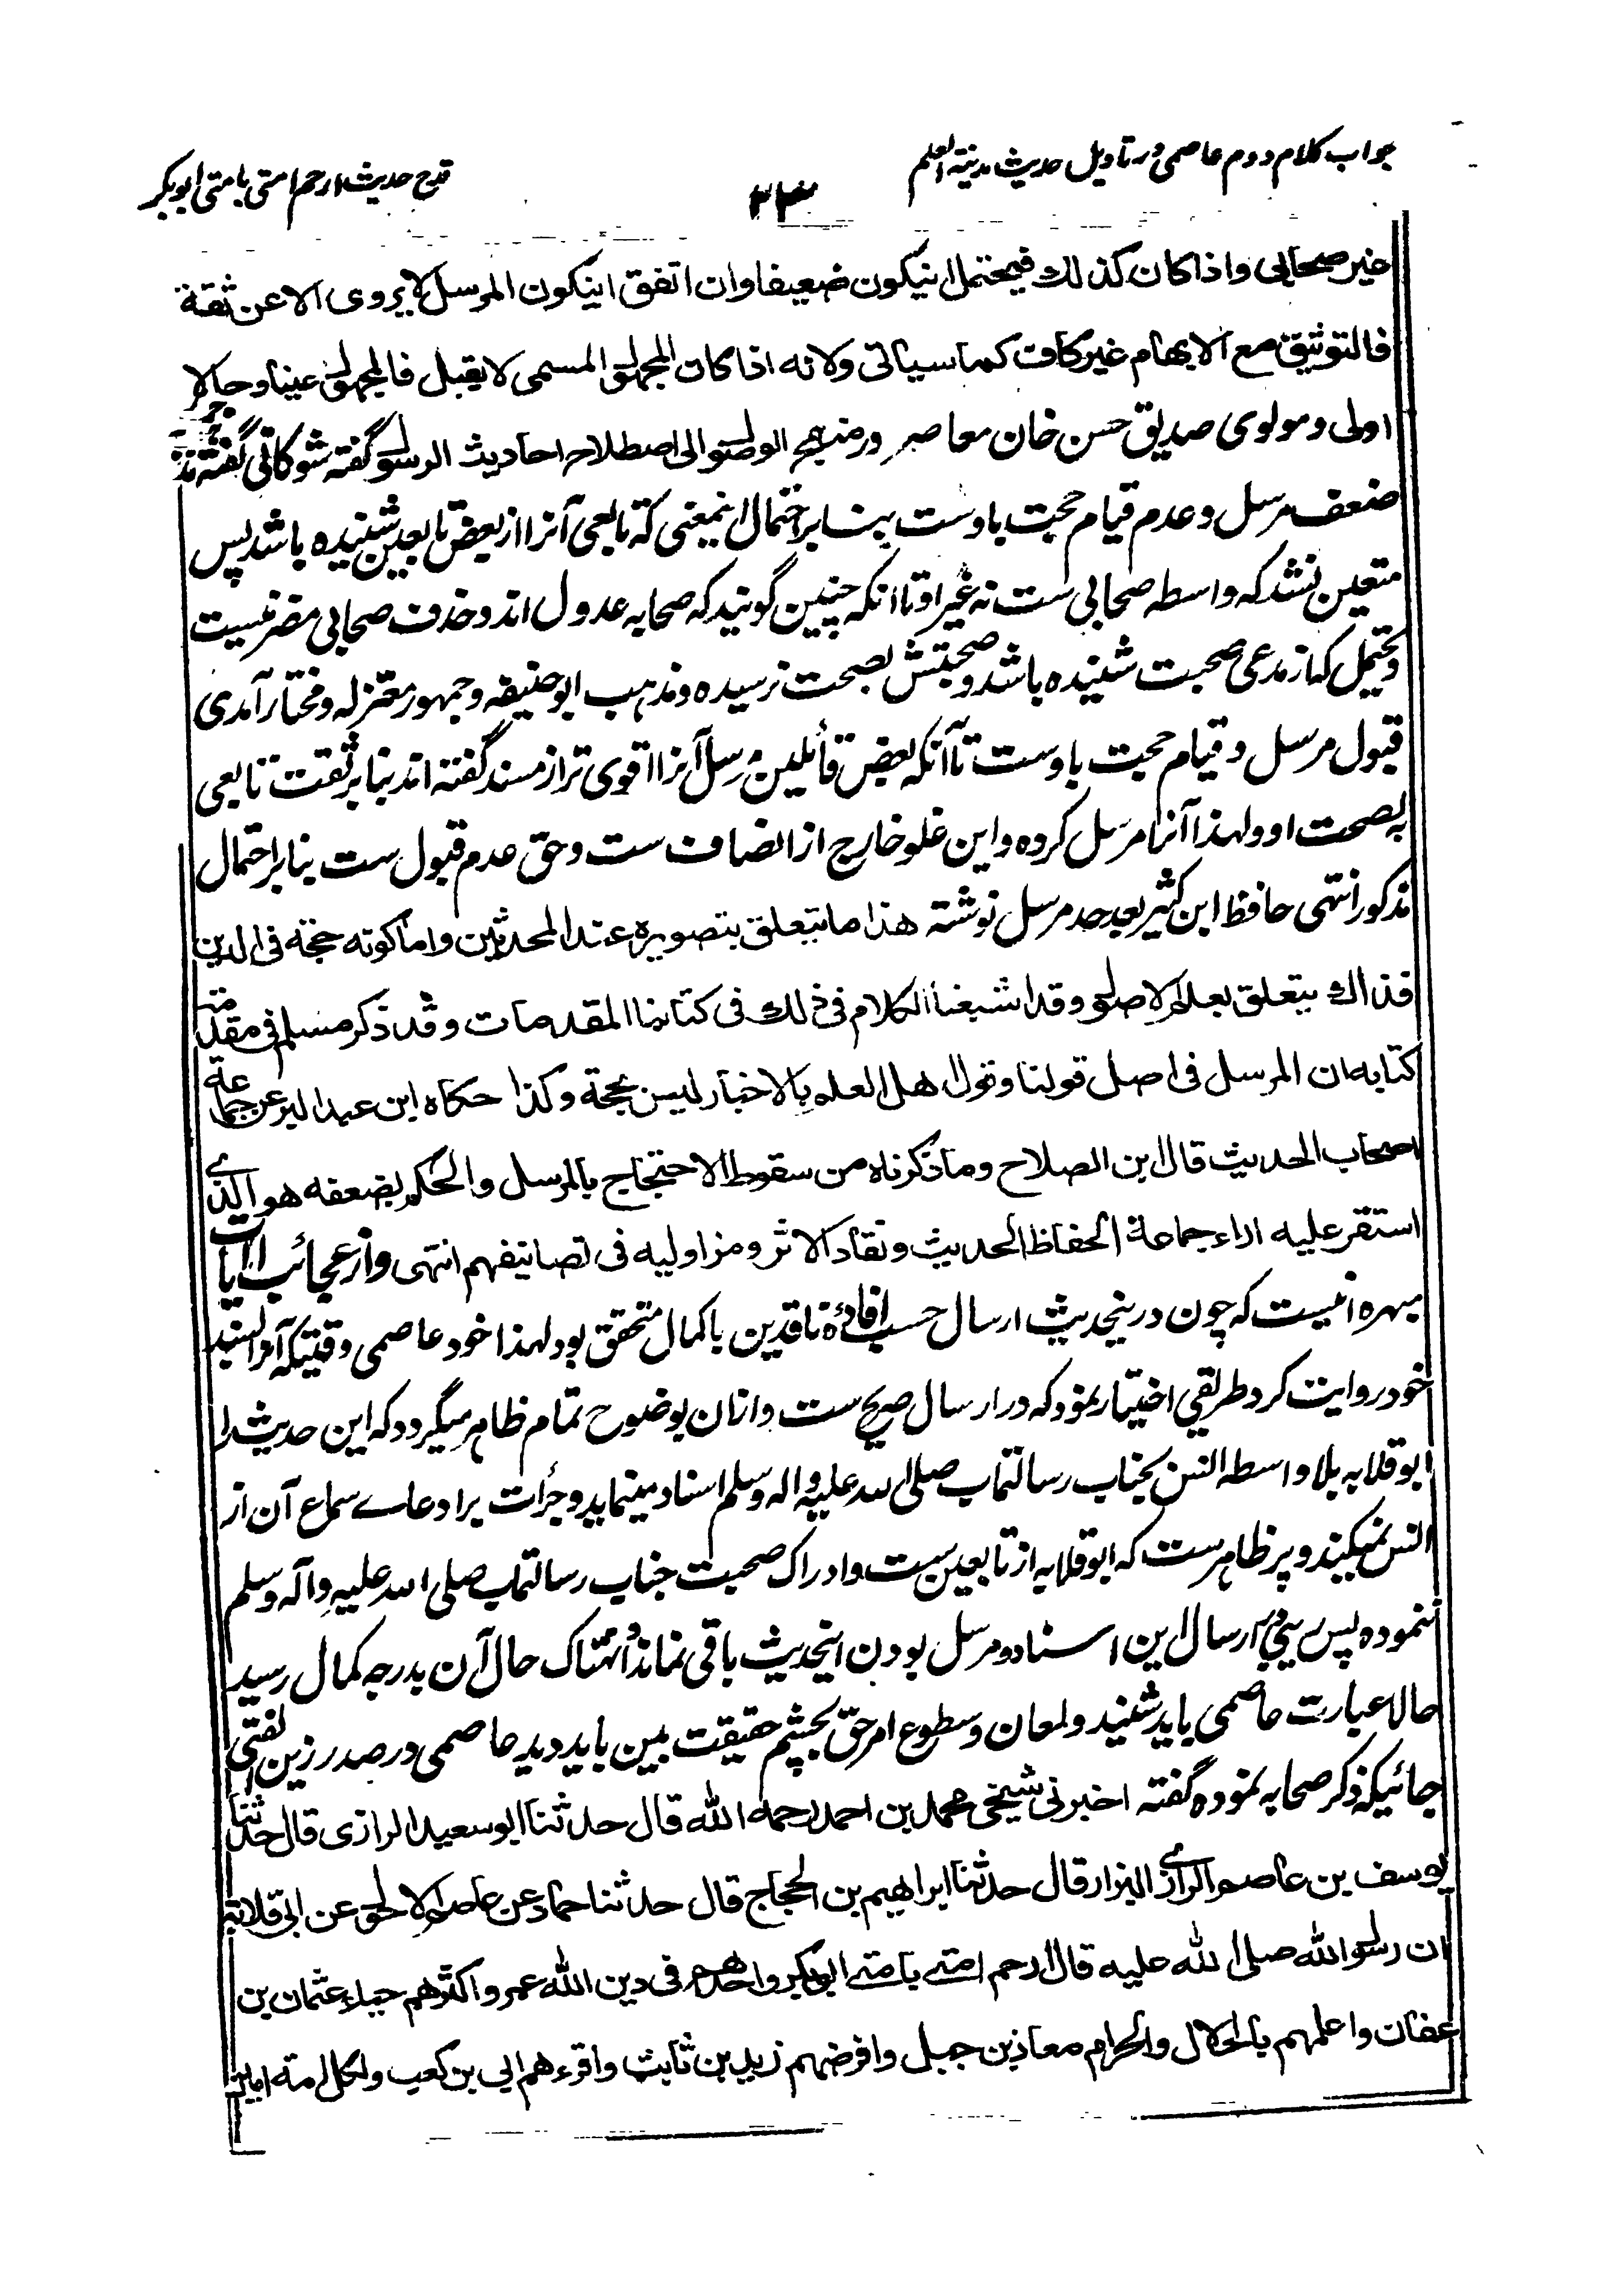 جواب کلام دوم عاصمی در تاویل حدیث مدینة العلم
۲۳
قدح حدیث ارحم امتی بامتی ابوبکر
غیر صحابی واذا کان کذلك فیحتمل انیکون ضعیفا وان اتفق انیکون المرسل لا یروی الا عن ثقة
فالتوثیق مع الابهام غیر کاف کما سیاتی ولانه اذا کان المجهول المسمی لا یقبل فالمجهول عینا وحالا
اولی و مولوی صدیق حسن خان معاصر در منهج الوصول الی اصطلاح احادیث الرسول گفته شوکانی گفته
ضعف مرسل و عدم قیام حجت باوست بنا بر احتمال اینمعنی که تابعی آنرا از بعض تابعین شنیده باشد پس
متعین نشد که واسطه صحابی ست نه غیر او تا آنکه چنین گویند که صحابه عدول اند و حذف صحابی مضر نیست
و یحتمل که از مدعی صحبت شنیده باشد و صحبتش بصحت نرسیده و مذهب ابو حنیفه و جمهور معتزله و مختار آمدی
قبول مرسل و قیام حجت باوست تا آنکه بعض قائلین مرسل آنرا اقوی تر از مسند گفته اند بنا بر ثقت تابعی
بصحت او و لهذا آنرا مرسل کرده و این غلو خارج از انصاف ست و حق عدم قبول ست بنا بر احتمال
مذکور انتهی حافظ ابن کثیر بعد حد مرسل نوشته هذا ما یتعلق بتصویره عند المحدثین واما کونه حجة فی الدین
فذاك یتعلق بعلم الاصول وقد اشبعنا الکلام فی ذلك فی کتابنا المقدمات وقد ذکر مسلم فی مقدمة
کتابه ان المرسل فی اصل قولنا وقول اهل العلم بالاخبار لیس بحجة وکذا حکاه ابن عبد البر عن جماعة
اصحاب الحدیث قال ابن الصلاح وما ذکرناه من سقوط الاحتجاج بالمرسل والحکم بضعفه هو الذی
استقر علیه اراء جماعة الحفاظ الحدیث ونقاد الاثر ومزاولیه فی تصانیفهم انتهی و از عجائب آیات
بهره انیست که چون درینحدیث ارسال حسب افادهٔ ناقدین با کمال متحقق بود لهذا خود عاصمی وقتیکه آنرا بسند
خود روایت کرد طریقی اختیار نمود که در ارسال صریح ست و ازان بوضوح تمام ظاهر میگردد که این حدیث را
ابو قلابه بلا واسطه انس بجناب رسالتماب صلی الله علیه و اله وسلم اسناد مینماید و جرأت بر ادعای سماع آن از
انس نمیکند و پر ظاهر ست که ابو قلابه از تابعین ست و ادراک صحبت جناب رسالتماب صلی الله علیه و آله وسلم
ننموده پس ارسال این اسناد و مرسل بودن اینحدیث باقی نماند و انهتاک حال آن بدرجه کمال رسید
حالا عبارت عاصمی باید شنید و لمعان و سطوع امر حق بچشم حقیقت بین باید دید عاصمی در صدر زین الفتی
جائیکه ذکر صحابه نموده گفته اخبرنی شیخی محمد بن احمد رحمه الله قال حدثنا ابو سعید الرازی قال حدثنا
یوسف بن عاصم الرازی البزار قال حدثنا ابراهیم بن الحجاج قال حدثنا حماد عن عاصم الاحول عن ابی قلابة
ان رسول الله صلی الله علیه قال ارحم امتی بامتی ابوبکر واحدهم فی دین الله عمر واکثرهم حیاء عثمان بن
عفان واعلمهم بالحلال والحرام معاذ بن جبل وافرضهم زید بن ثابت واقرءهم ابی بن کعب ولکل امة امین